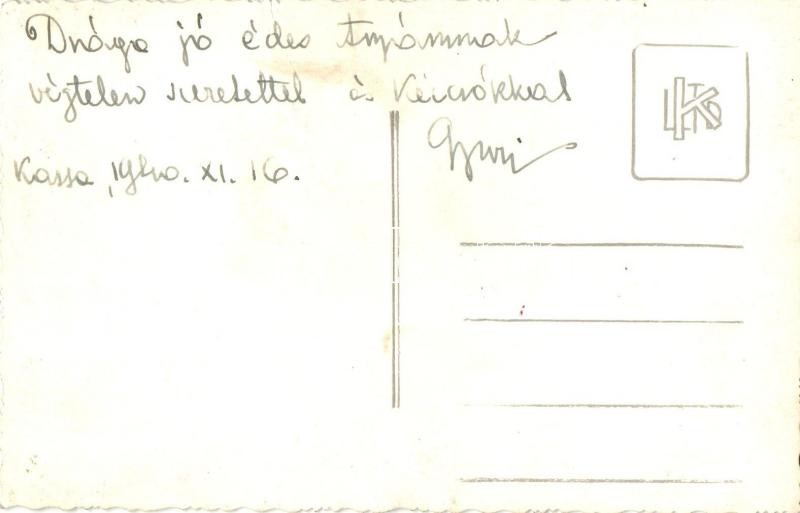 Drága jó édes Anyámnak
végtelen szeretettel és Kézcsókkal
Gyuri
Kassa, 1940. XI. 16.